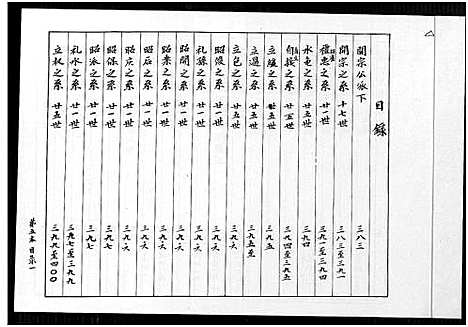 目錄
開宗公派下 三八三
開宗之系 十七世 三八三至三九一
禮忠之系 廿一世 三九一至三九四
永屯之系 廿五世 三九四
自後之系 廿五世 三九四至三九五
立經之系 廿五世 三九五
立選之系 廿五世 三九五至
立邑之系 廿五世 三九六
昭俊之系 廿一世 三九六
礼孫之系 廿一世 三九六
昭開之系 廿一世 三九六
昭素之系 廿一世 三九六
昭后之系 廿一世 三九六
昭庆之系 廿一世 三九六
昭保之系 廿一世 三九七
昭派之系 廿一世 三九七
礼水之系 廿一世 三九七至三九九
立权之系 廿五世 三九九至四〇〇
第五本目录一